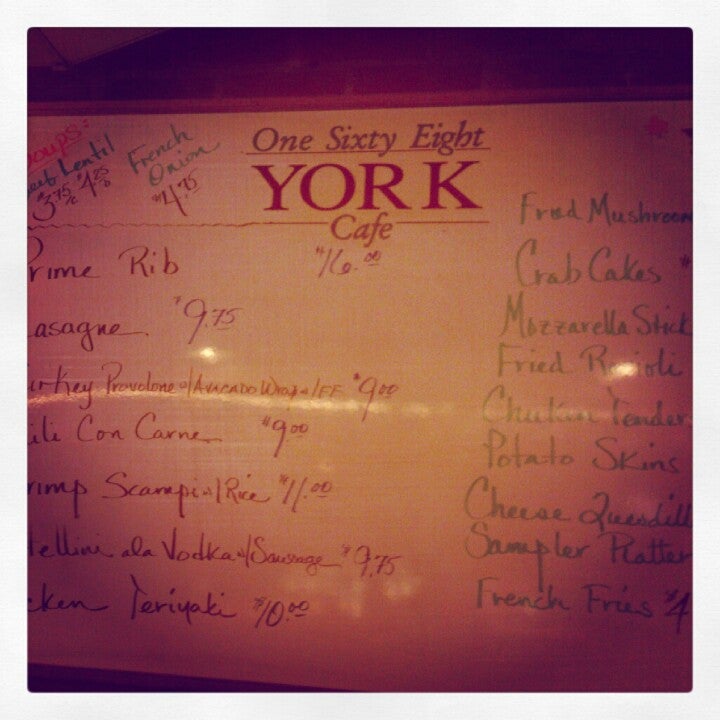 oups:
Beef Lentil
$3.75/c $4.25/b
French
Onion
$4.75
One Sixty Eight
YORK
Cafe
Prime Rib $16.00
asagne $9.75
urkey Provolone w/Avacado Wrap w/FF $9.00
ili Con Carne $9.00
rimp Scampi w/Rice $11.00
tellini ala Vodka w/Sausage $9.75
cken Teriyaki $10.00
Fried Mushroom
Crab Cakes $
Mozzarella Stick
Fried Ravioli
Chicken Tender
Potato Skins
Cheese Quesdill
Sampler Platter
French Fries $4